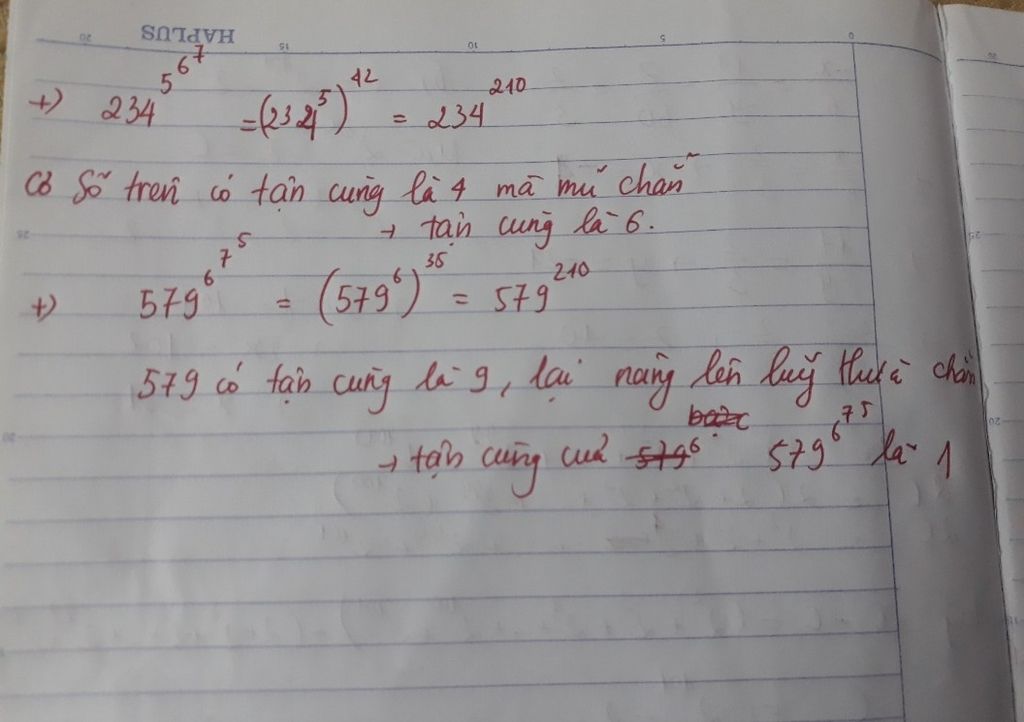 HAPLUS
20 15 10 5 0
+) 234^5^6^7 = (234^5)^42 = 234^210
Cơ Số trên có tận cùng là 4 mà mũ chẵn
→ tận cùng là 6.
+) 579^6^7^5 = (579^6)^35 = 579^210
579 có tận cùng là 9, lại nâng lên luỹ thừa chẵn
→ tận cùng của 579^6^7^5 là 1